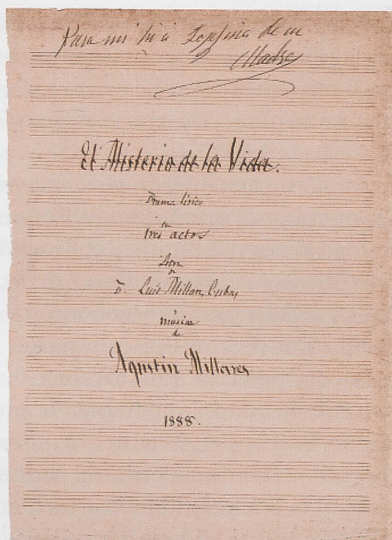 Para mi hija Josefina de su
Madre
El Misterio de la Vida.
Drama lírico
en
tres actos
Letra
de
D. Luis Millares Cubas
música
de
Agustin Millares
1888.